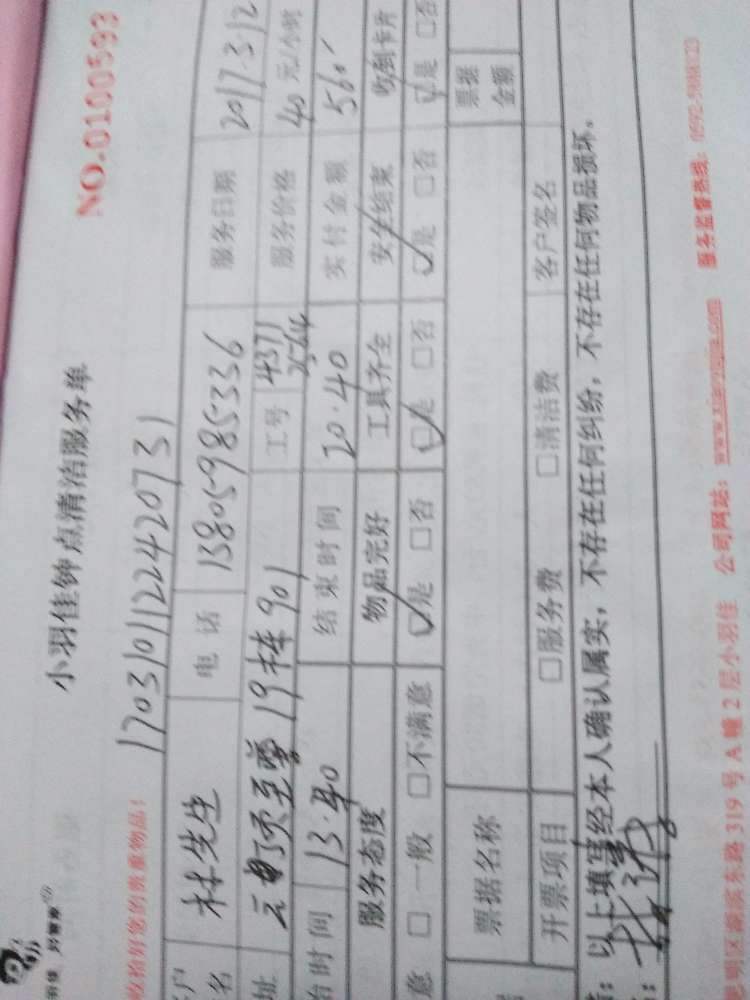 小羽佳钟点清洁服务单
NO.0100593
收拾好您的贵重物品!
170310112242073 1
户名 林先生 电话 13805985336 服务日期 2017.3.12
址 19栋901 工号 4371 2564 服务价格 40元/小时
始时间 13.40 结束时间 20.40 实付金额 560
服务态度 物品完好 工具齐全 安全结束 收到卡片
意 □一般 □不满意 ☑是 □否 ☑是 □否 ☑是 □否 ☑是 □否
票据名称 票据金额
开票项目 □服务费 □清洁费 客户签名
以上填写经本人确认属实,不存在任何纠纷,不存在任何物品损坏。
明区湖滨东路319号A幢2层小羽佳 公司网站: www.xiaoyujia.com 服务监督热线: 0592-5888123